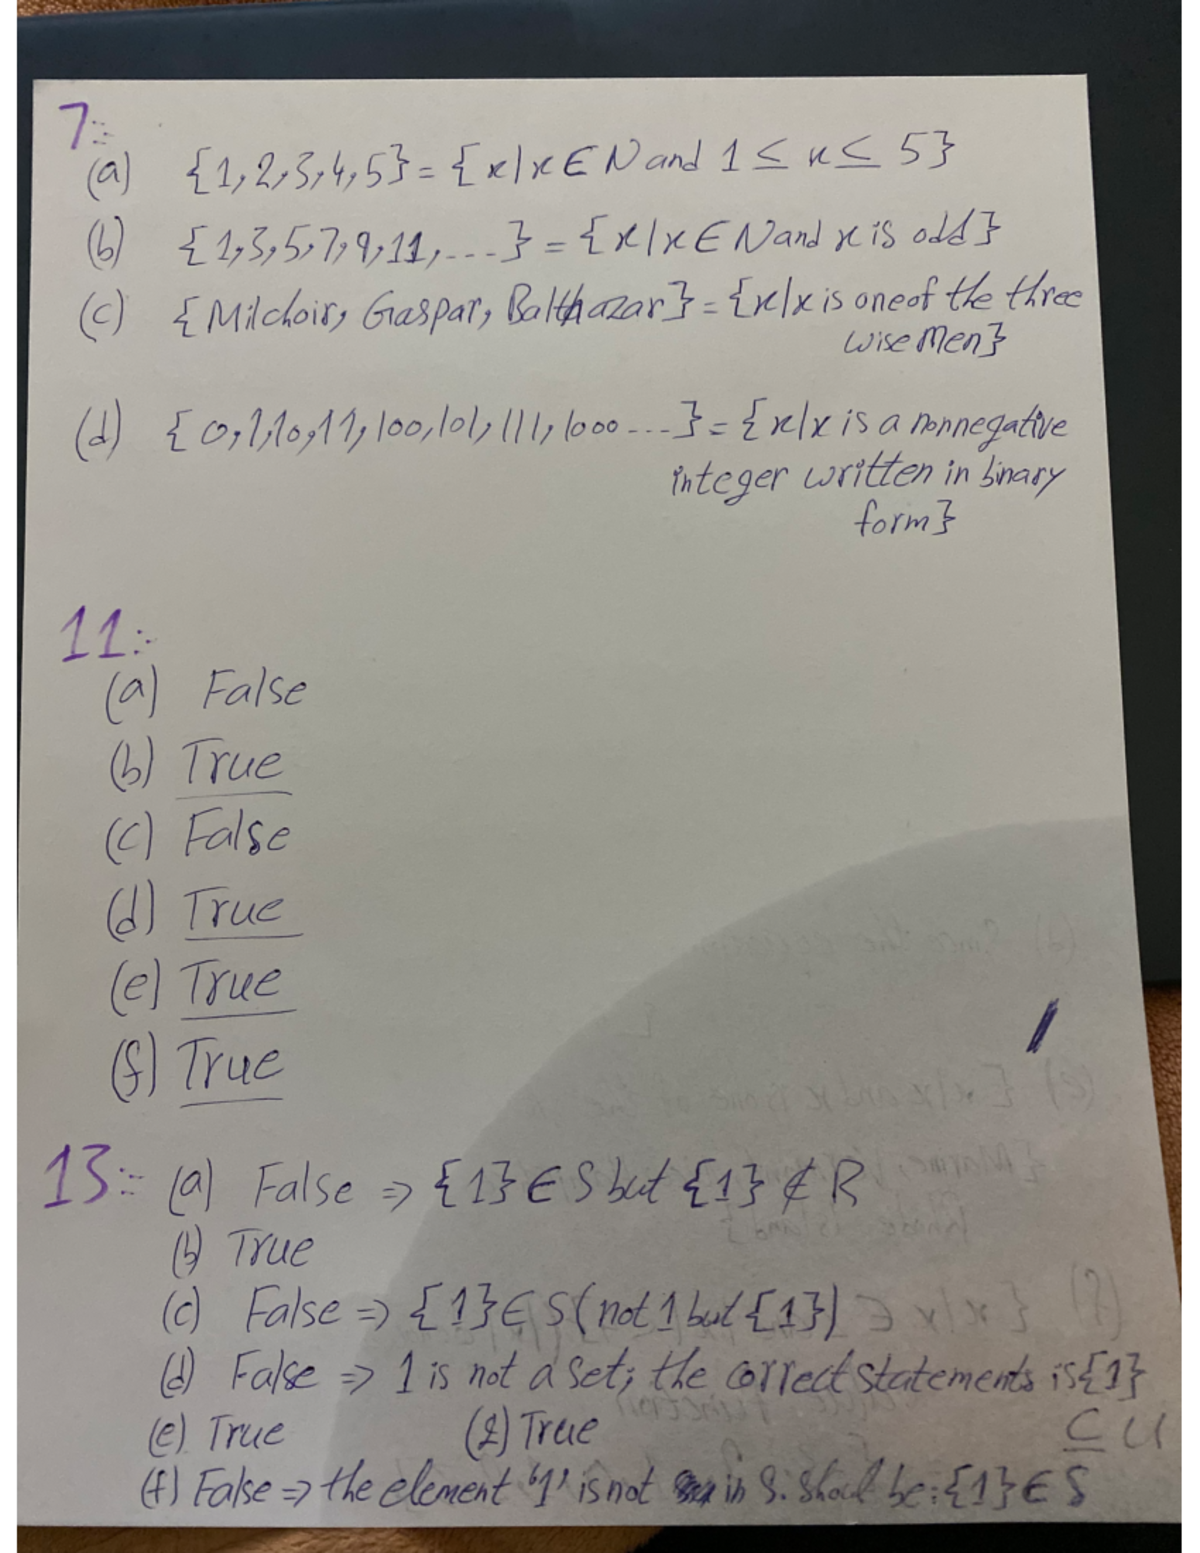 7:-
(a) {1,2,3,4,5} = {x|x ∈ N and 1 ≤ x ≤ 5}
(b) {1,3,5,7,9,11,...} = {x|x ∈ N and x is odd}
(c) {Milchoir, Gaspar, Balthazar} = {x|x is one of the three
wise Men}
(d) {0,1,10,11,100,101,111,1000...} = {x|x is a nonnegative
integer written in binary
form}
11:-
(a) False
(b) True
(c) False
(d) True
(e) True
(f) True
13:- (a) False ⇒ {1} ∈ S but {1} ∉ R
(b) True
(c) False ⇒ {1} ∈ S (not 1 but {1})
(d) False ⇒ 1 is not a set; the correct statements is {1}
⊆ U
(e) True (g) True
(f) False ⇒ the element '1' is not in S. Shoul be: {1} ∈ S